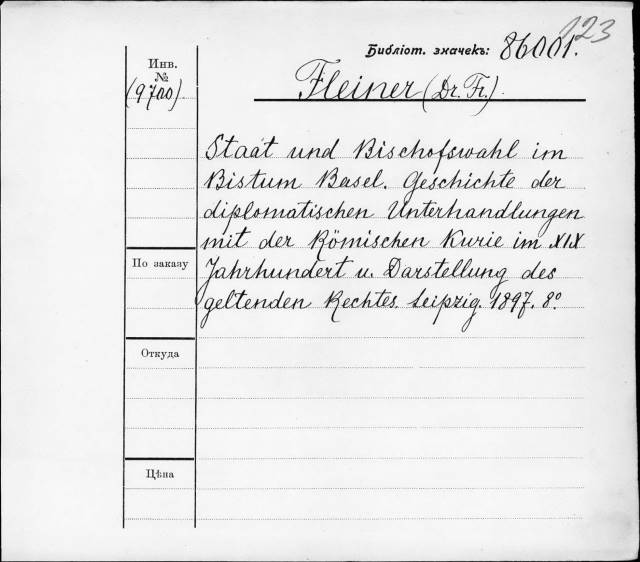 123
Библіот. значекъ: 86001.
Инв.
№
(9700)
Fleiner (Dr. Fr.)
Staat und Bischofswahl im
Bistum Basel. Geschichte der
diplomatischen Unterhandlungen
mit der Römischen Kurie im XIX
Jahrhundert u. Darstellung des
geltenden Rechtes. Leipzig. 1897. 8°
По заказу
Откуда
Цѣна